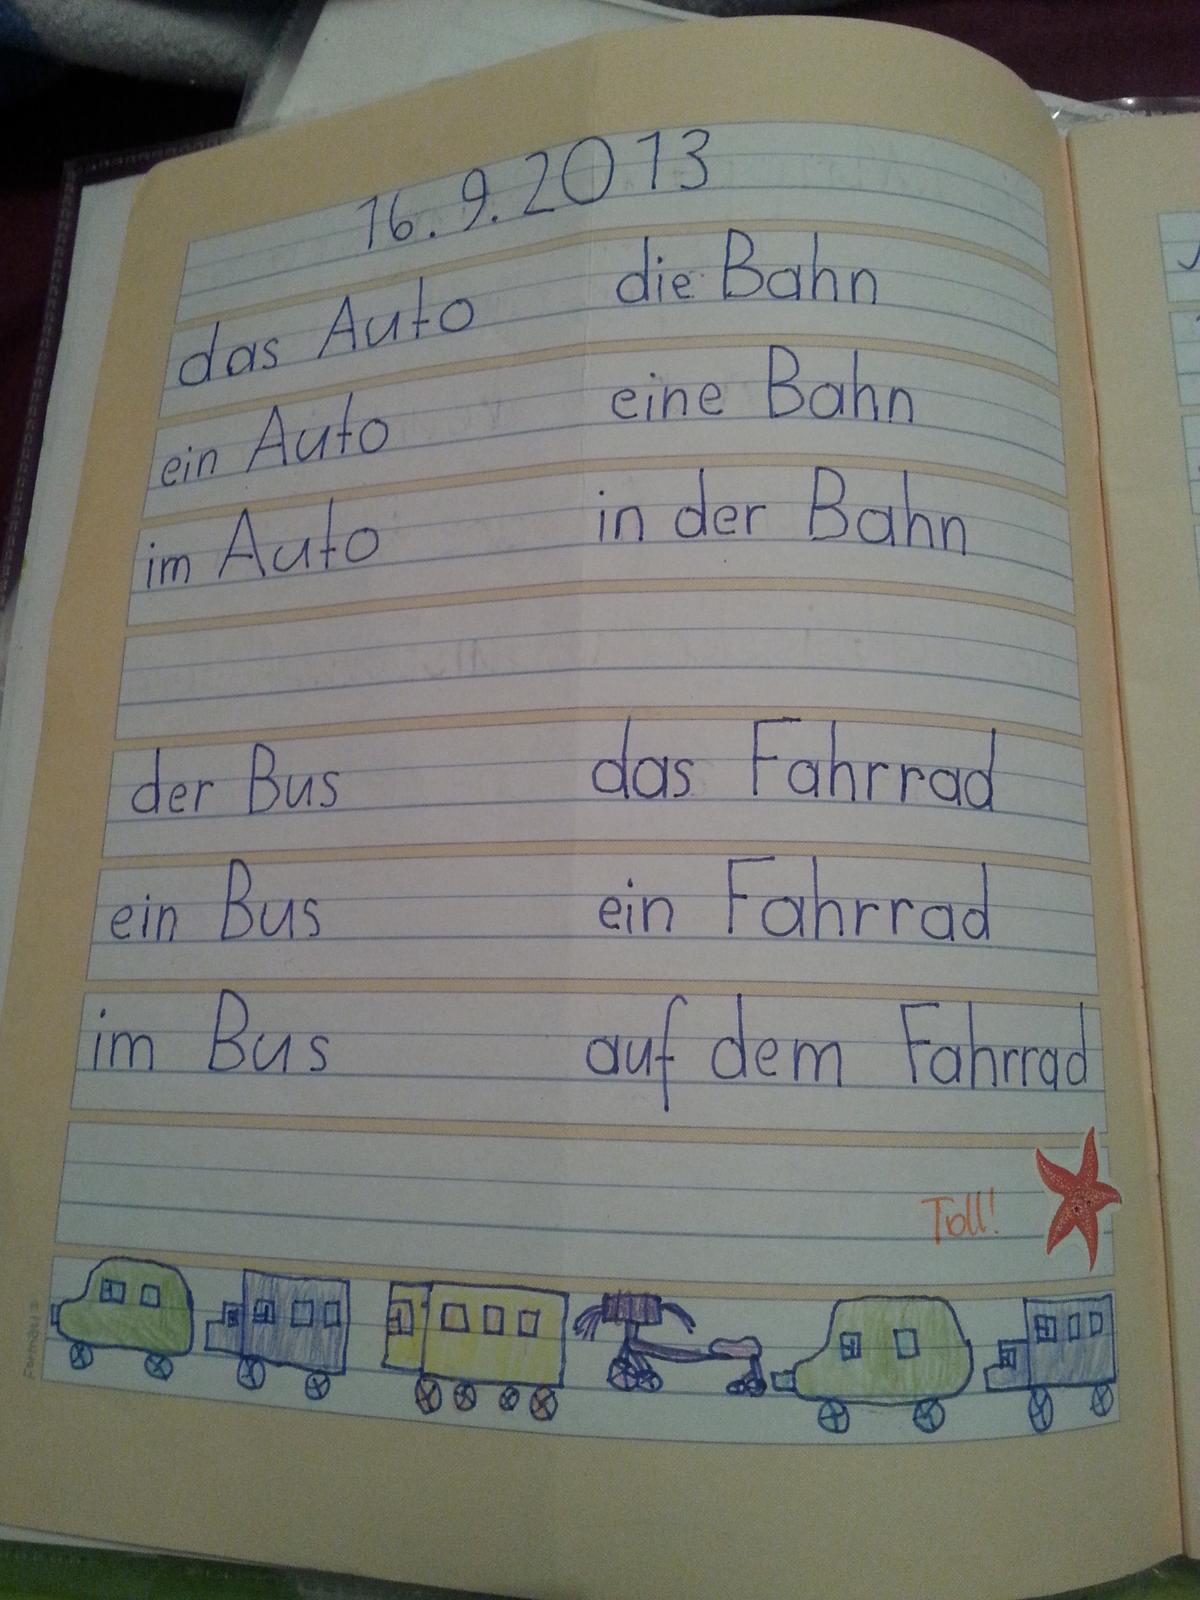 16.9.2013
das Auto die Bahn
ein Auto eine Bahn
im Auto in der Bahn
der Bus das Fahrrad
ein Bus ein Fahrrad
im Bus auf dem Fahrrad
Toll!